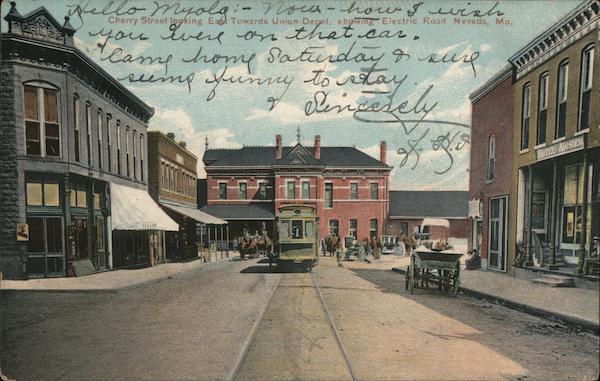 Hello Myola:- Now - how I wish
Cherry Street looking East Towards Union Depot, showing Electric Road Nevada, Mo.
you were on that car.
Came home Saturday & sure
seems funny to stay
& Sincerely
HOTEL MOSES